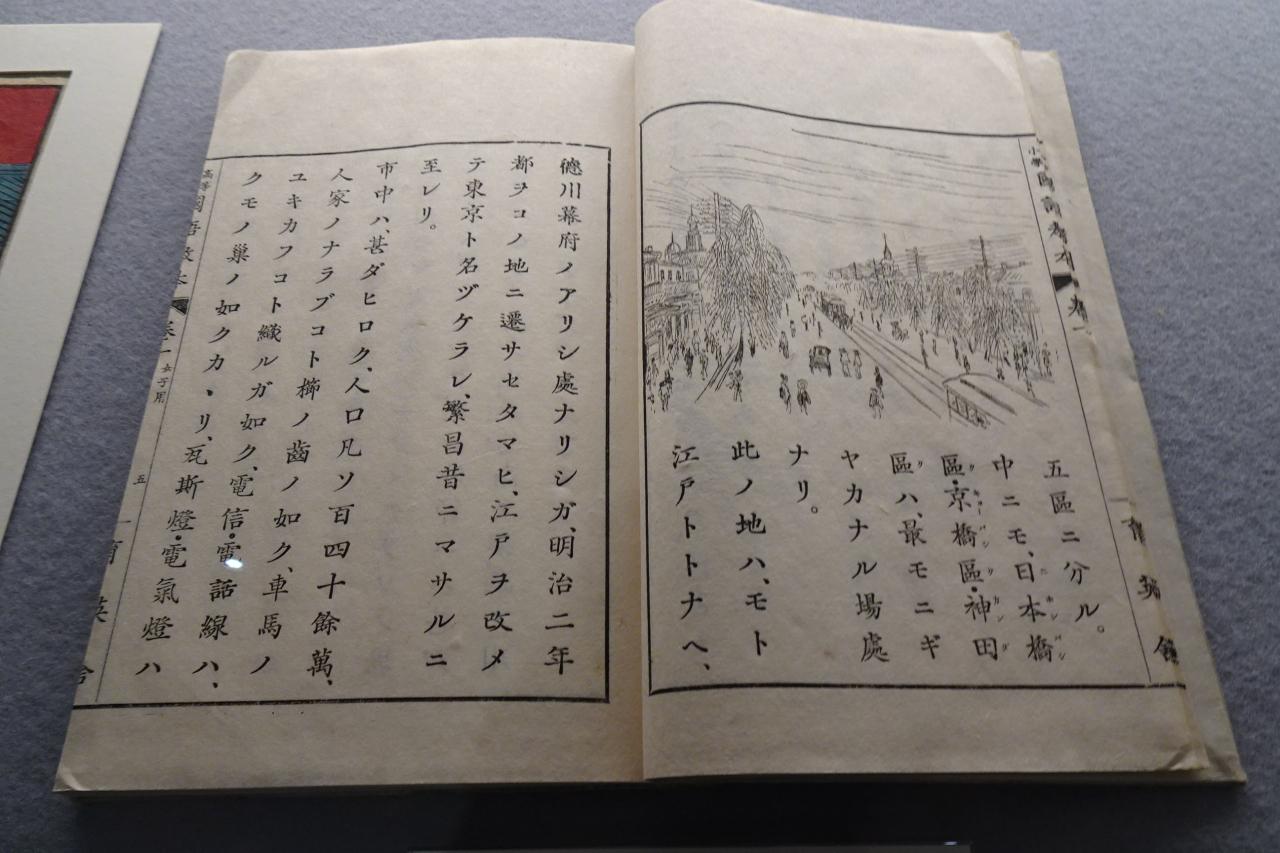 五區ニ分ル。
中ニモ、日本橋
區・京橋區・神田
區ハ、最モニギ
ヤカナル場處
ナリ。
此ノ地ハ、モト
江戸トトナヘ、
德川幕府ノアリシ處ナリシガ、明治二年
都ヲコノ地ニ遷サセタマヒ、江戸ヲ改メ
テ東京ト名ヅケラレ、繁昌昔ニマサルニ
至レリ。
市中ハ、甚ダヒロク、人口凡ソ百四十餘萬、
人家ノナラブコト櫛ノ齒ノ如ク、車馬ノ
ユキカフコト織ルガ如ク、電信・電話線ハ、
クモノ巢ノ如クカヽリ、瓦斯燈・電氣燈ハ
高等國語讀本 卷一 女子用 五